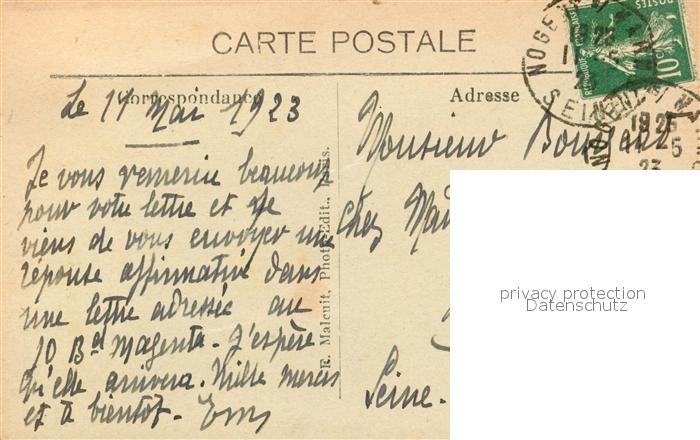 CARTE POSTALE
Correspondance
Adresse
Le 14 Mai 1923
Je vous remercie beaucoup
pour votre lettre et je
viens de vous envoyer une
réponse affirmative dans
une lettre adressée au
10 Bd Magenta. J'espère
qu'elle arrivera. Mille mercis
et à bientôt.
E. Malcuit, Phot.-Edit., Paris.
Monsieur
chez
Seine.
NOGENT
SEINE
POSTES
10
privacy protection
Datenschutz